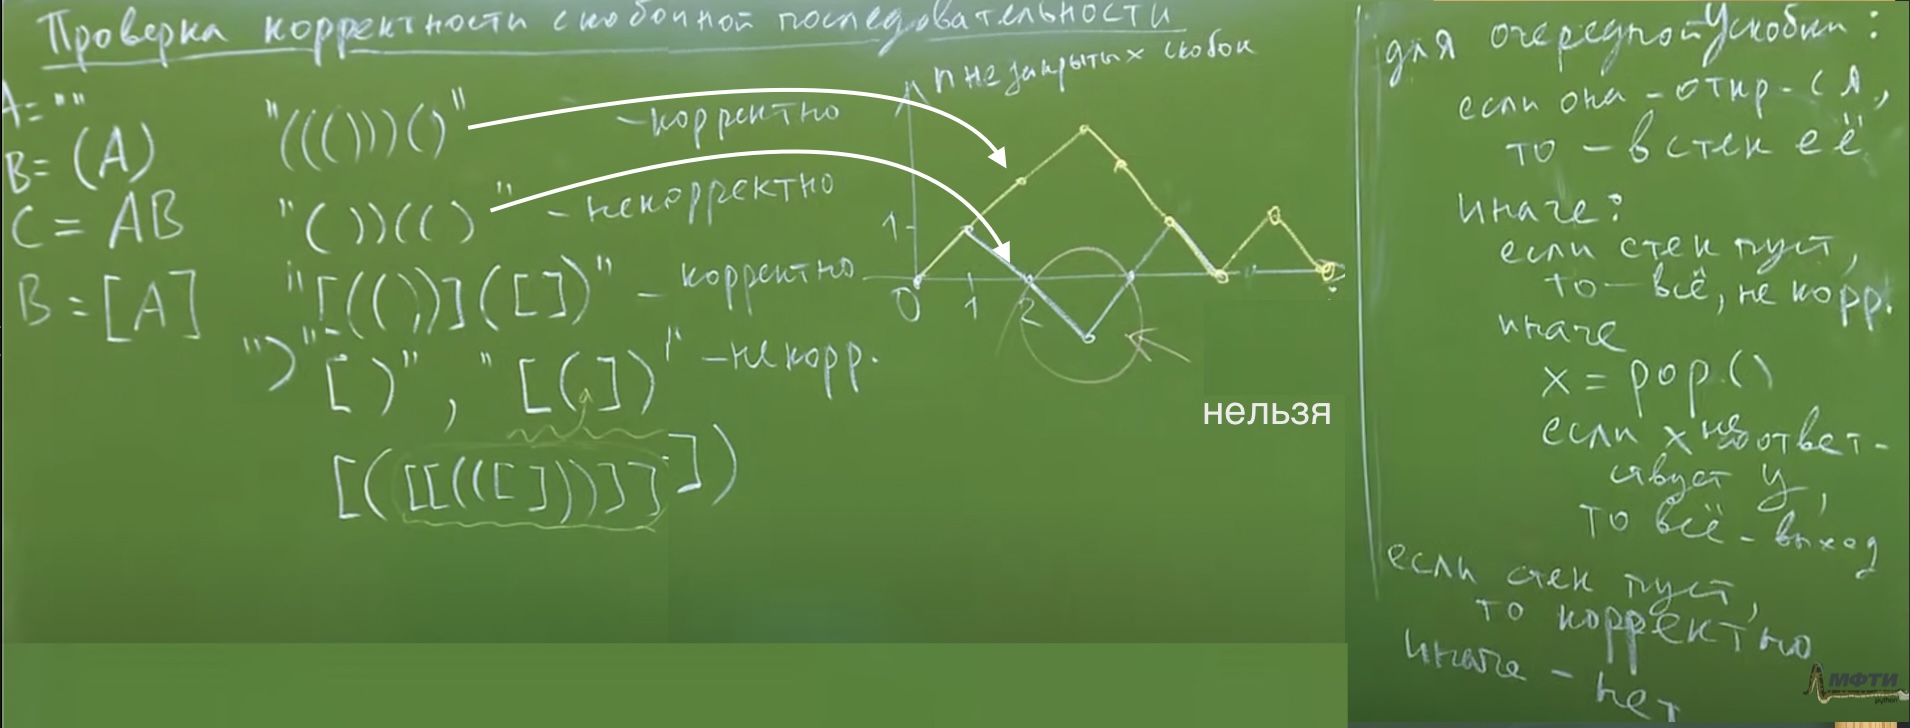 Проверка корректности скобочной последовательности
A = ""
B = (A)
C = AB
B = [A]
"((()))()" - корректно
"())(()" - некорректно
"[(())]([])" - корректно
")" "[)", "[(])" - некорр.
[([[(([]))]]])
n незакрытых скобок
1
0 1 2
нельзя
для очередной y скобки:
если она - откр-ся,
то - в стек её
иначе:
если стек пуст,
то - всё, не корр.
иначе
x = pop()
если x не соответ-
ствует y,
то всё - выход
если стек пуст,
то корректно
иначе - нет
МФТИ
python